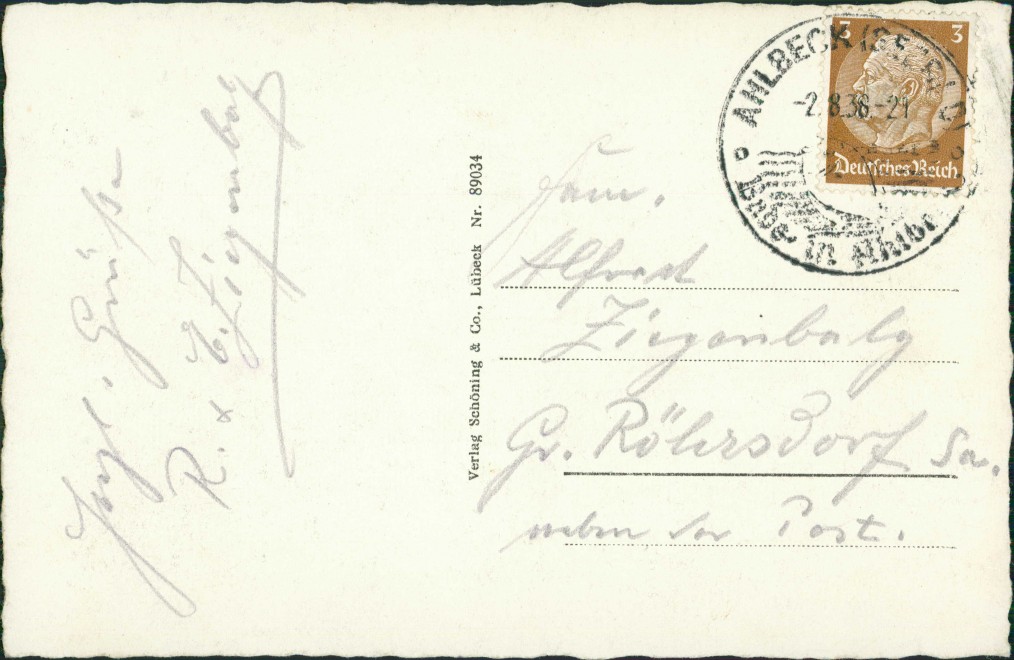 Herzl. Grüße
R. + E. Ziegenbalg
Verlag Schöning & Co., Lübeck Nr. 89034
3 3
Deutsches Reich
AHLBECK (SEEBAD)
-2.8.38-21
Fam.
Alfred
Ziegenbalg
Gr. Röhrsdorf Sa.
neben der Post.